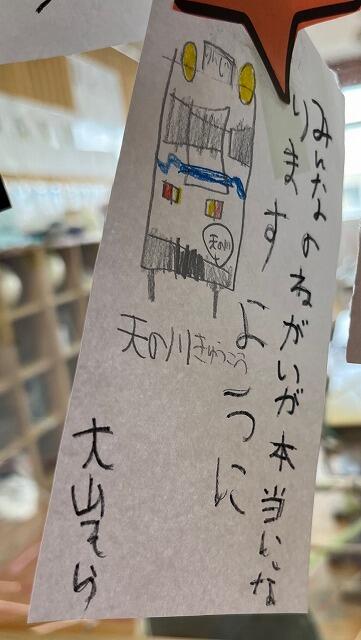 みんなのねがいが本当にな
りますように
天の川きゅうこう
天の川
大山そら